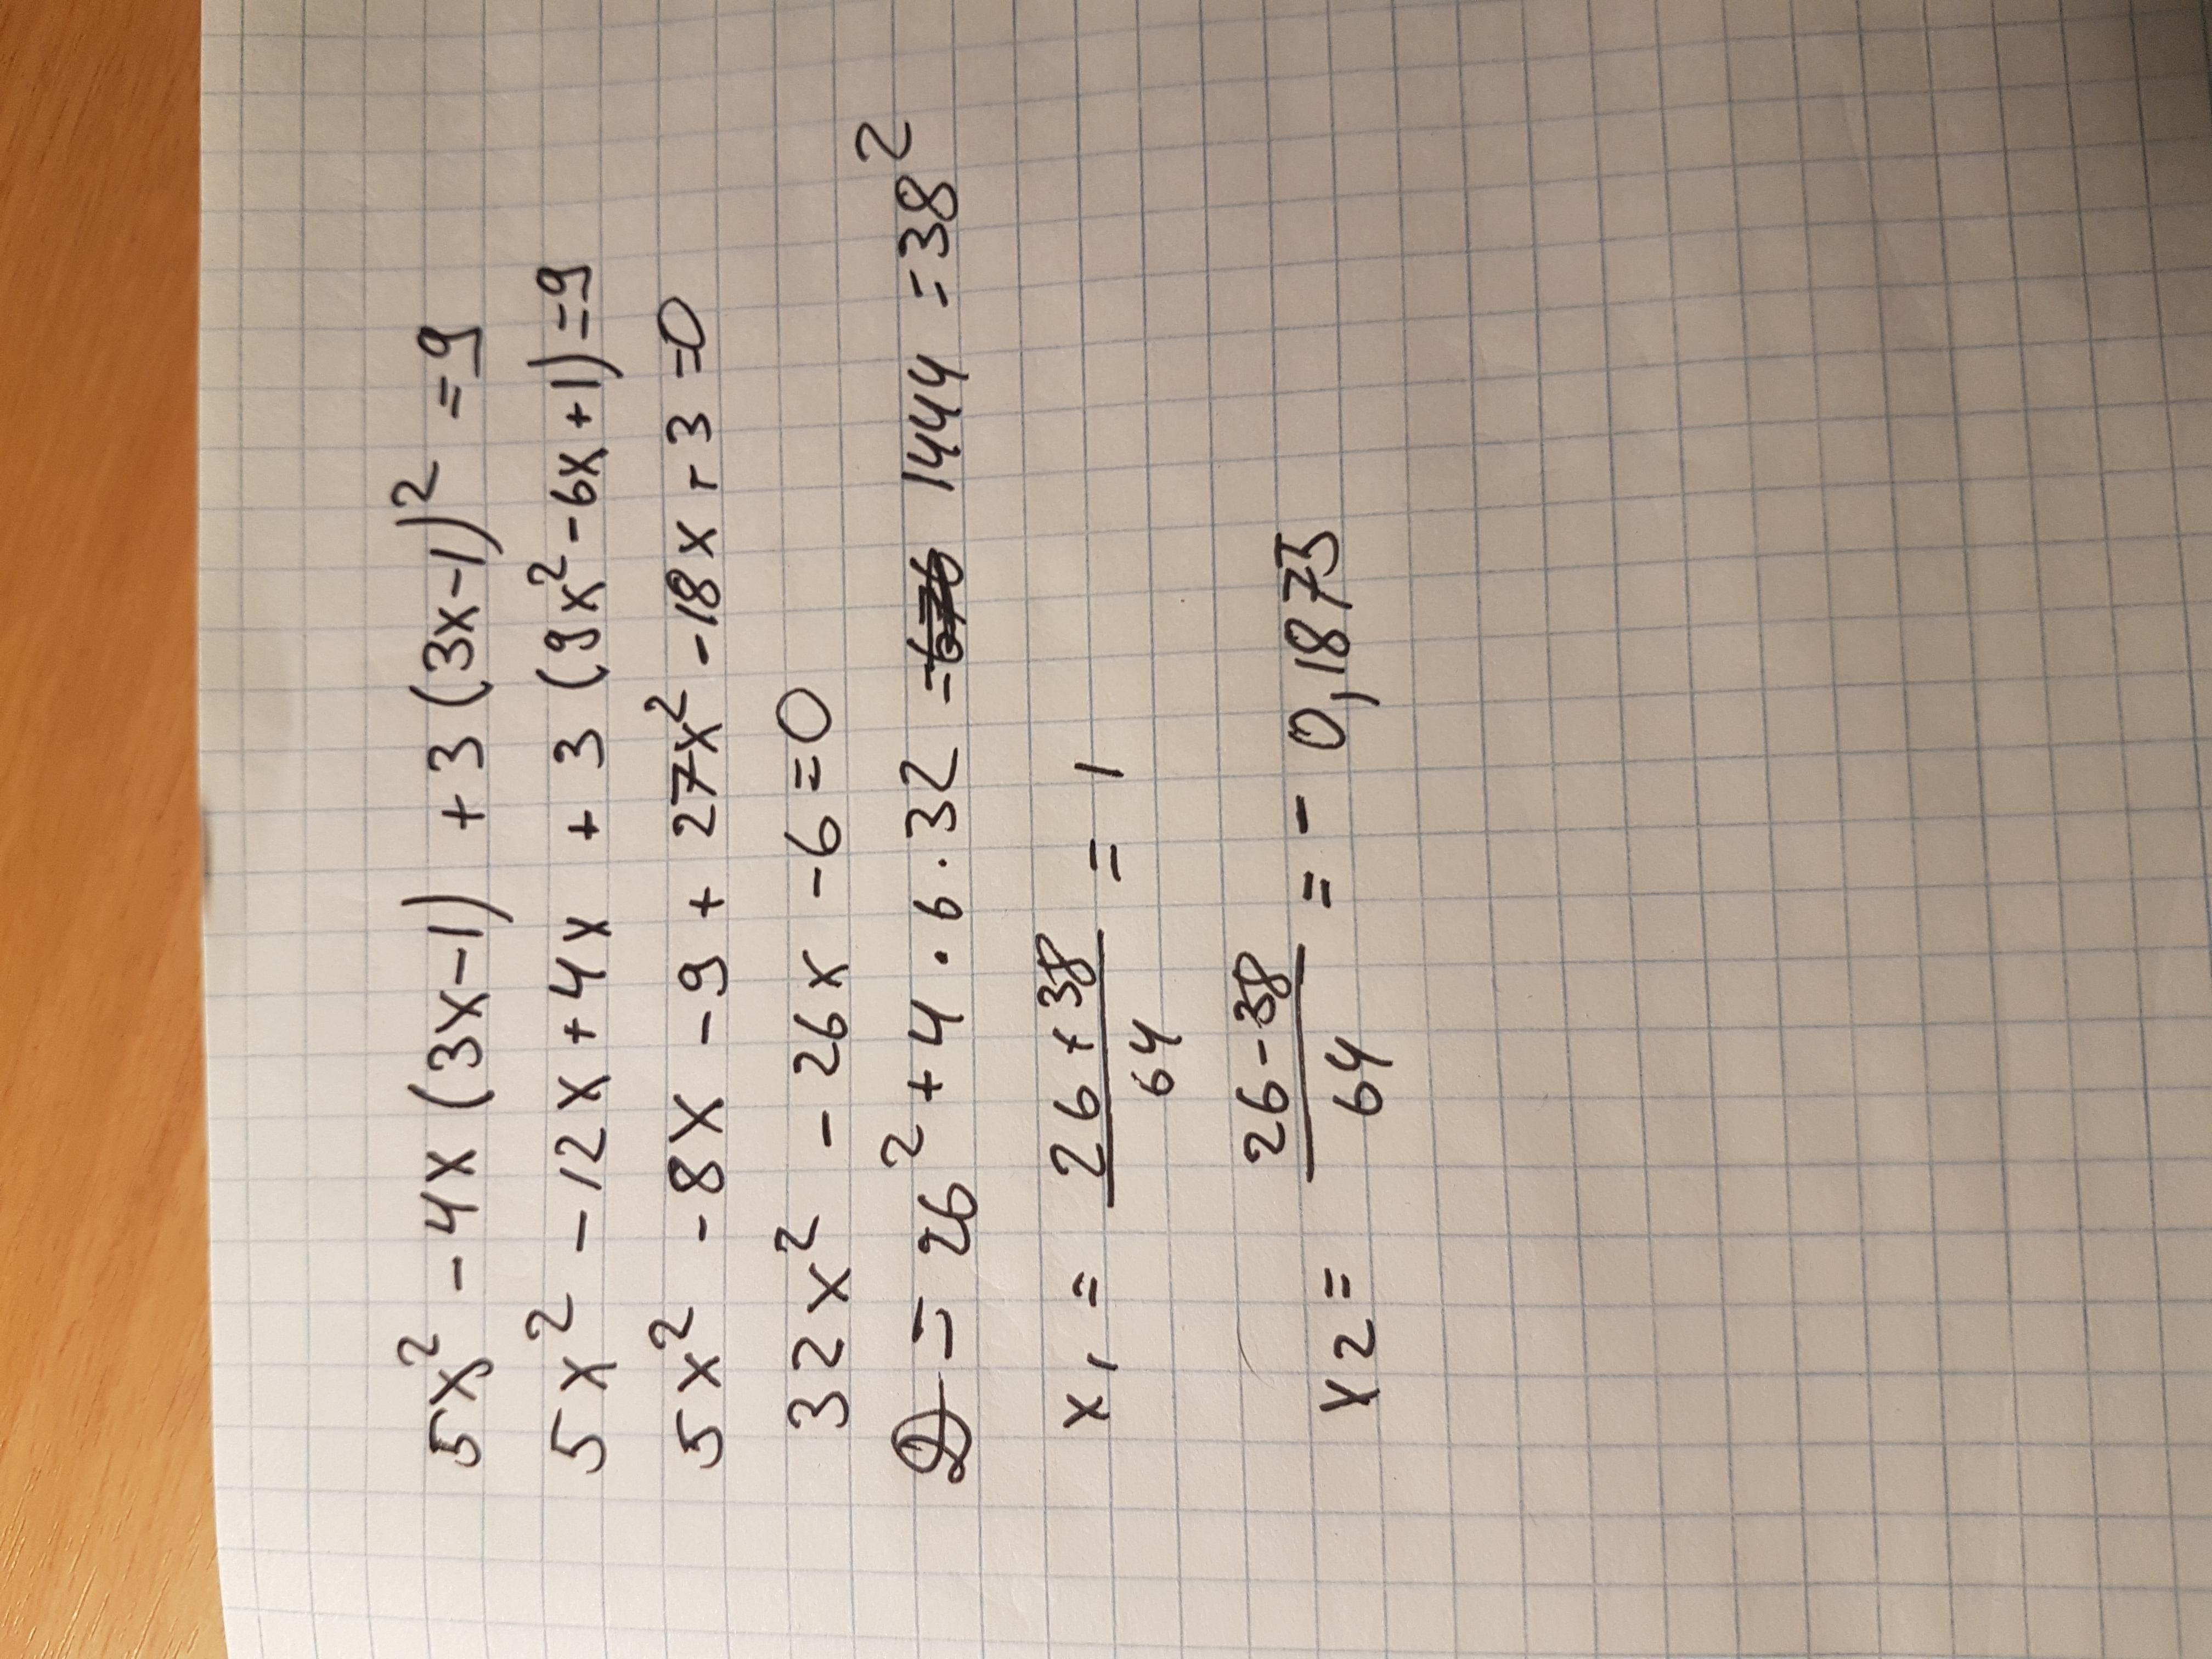 5x² - 4x (3x-1) + 3 (3x-1)² = 9
5x² - 12x + 4x + 3 (9x² - 6x + 1) = 9
5x² - 8x - 9 + 27x² - 18x + 3 = 0
32x² - 26x - 6 = 0
D = 26² + 4 · 6 · 32 = 1444 = 38²
x₁ = (26 + 38)/64 = 1
x₂ = (26 - 38)/64 = - 0,1875